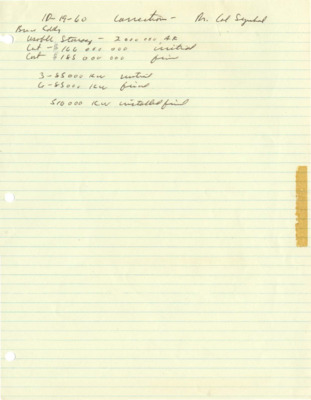 10-19-60 Correction - Mr. Cal
Storage - 2 000 000 AF
Cost - $ 166 000 000 initial
Cost $ 185 000 000 final
3 - 85000 KW initial
6 - 85000 KW final
510 000 KW installed final